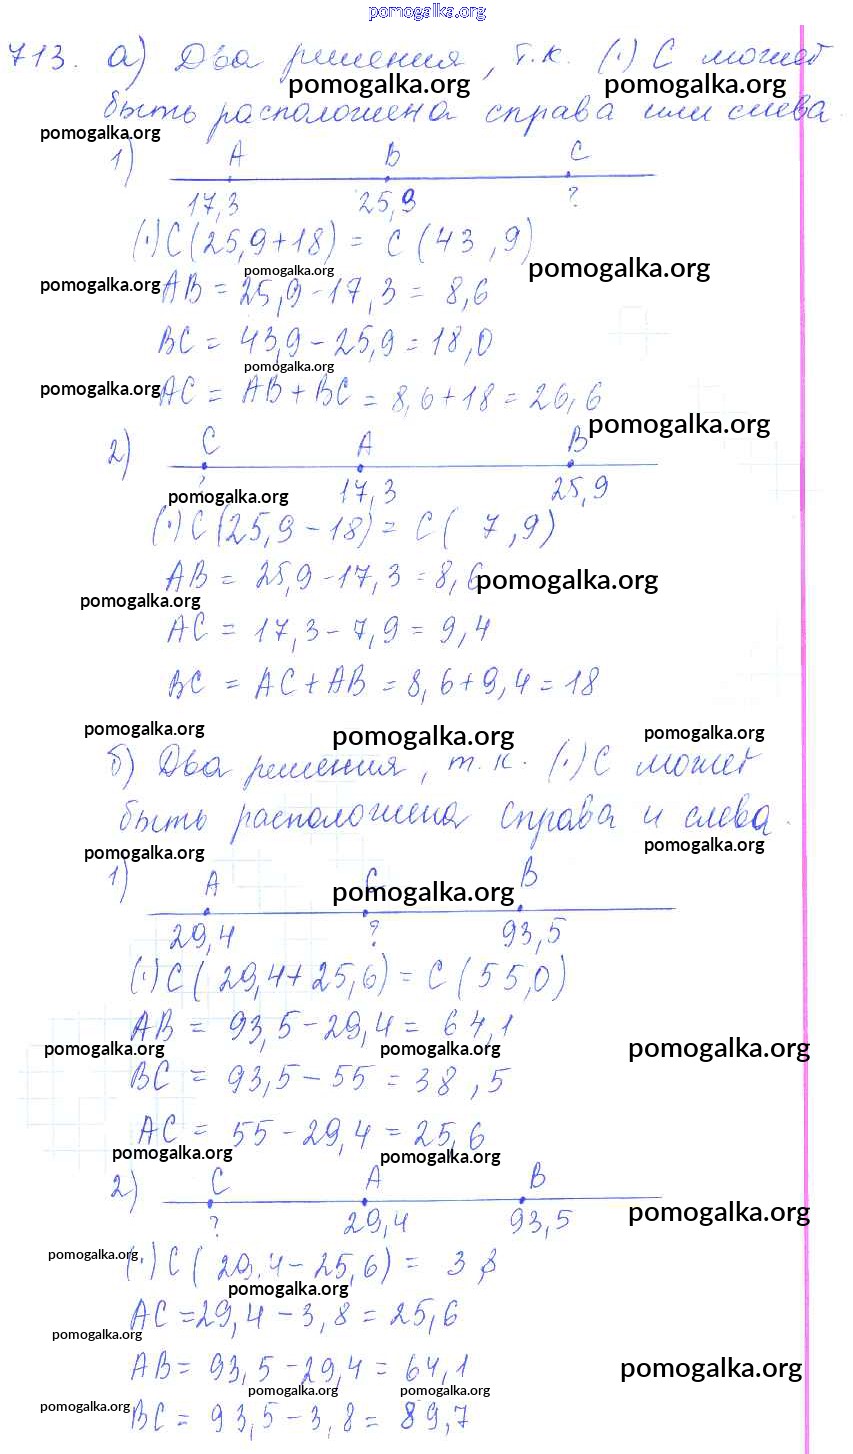 pomogalka.org
713. а) Два решения, т.к. (·) С может
pomogalka.org pomogalka.org
быть расположена справа или слева.
pomogalka.org
1) A B C
17,3 25,9 ?
(·) C (25,9+18) = C (43,9)
pomogalka.org pomogalka.org
pomogalka.org AB = 25,9 - 17,3 = 8,6
BC = 43,9 - 25,9 = 18,0
pomogalka.org
pomogalka.org AC = AB + BC = 8,6 + 18 = 26,6
pomogalka.org
2) C A B
? 17,3 25,9
pomogalka.org
(·) C (25,9 - 18) = C ( 7,9)
AB = 25,9 - 17,3 = 8,6 pomogalka.org
pomogalka.org
AC = 17,3 - 7,9 = 9,4
BC = AC + AB = 8,6 + 9,4 = 18
pomogalka.org pomogalka.org pomogalka.org
б) Два решения, т.к. (·) С может
быть расположена справа и слева.
pomogalka.org pomogalka.org
1) A C B
pomogalka.org
29,4 ? 93,5
(·) C ( 29,4 + 25,6) = C (55,0)
AB = 93,5 - 29,4 = 64,1
pomogalka.org pomogalka.org pomogalka.org
BC = 93,5 - 55 = 38,5
AC = 55 - 29,4 = 25,6
pomogalka.org pomogalka.org
2) C A B
? 29,4 93,5 pomogalka.org
(·) C ( 29,4 - 25,6) = 3,8
pomogalka.org pomogalka.org
AC = 29,4 - 3,8 = 25,6
pomogalka.org
AB = 93,5 - 29,4 = 64,1 pomogalka.org
pomogalka.org pomogalka.org
pomogalka.org BC = 93,5 - 3,8 = 89,7